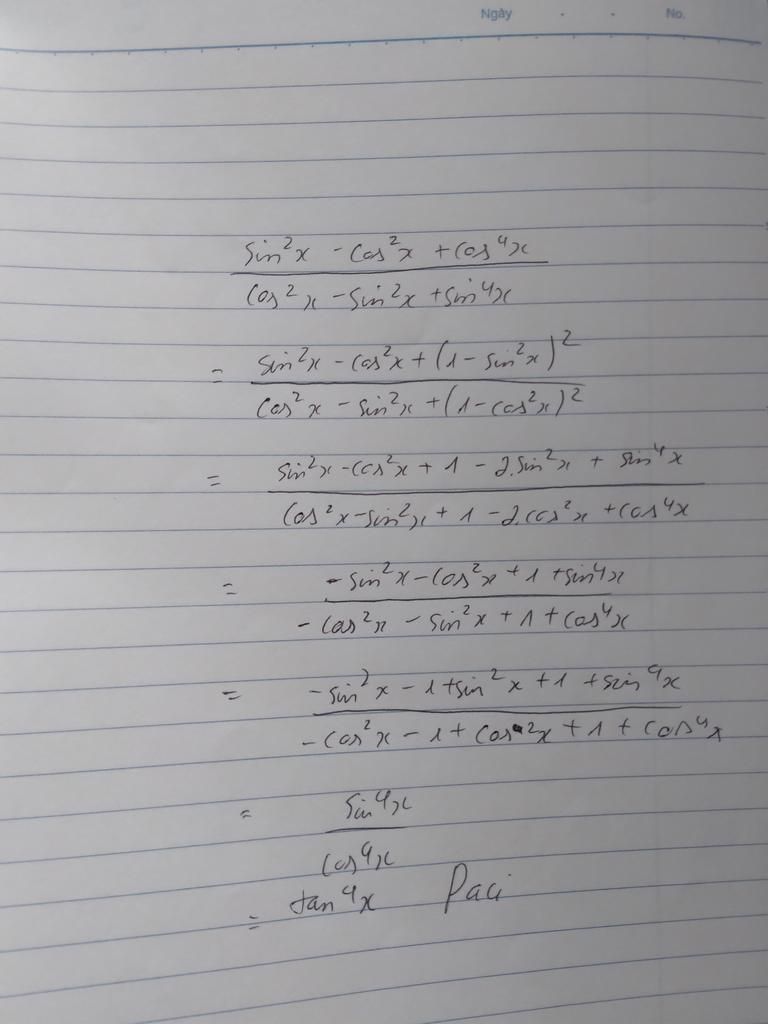 Ngày . . No.
sin²x - cos²x + cos⁴x
cos²x - sin²x + sin⁴x
= sin²x - cos²x + (1 - sin²x)²
cos²x - sin²x + (1 - cos²x)²
= sin²x - cos²x + 1 - 2.sin²x + sin⁴x
cos²x - sin²x + 1 - 2.cos²x + cos⁴x
= - sin²x - cos²x + 1 + sin⁴x
- cos²x - sin²x + 1 + cos⁴x
= - sin²x - 1 + sin²x + 1 + sin⁴x
- cos²x - 1 + cos²x + 1 + cos⁴x
= sin⁴x
cos⁴x
= tan⁴x Paci